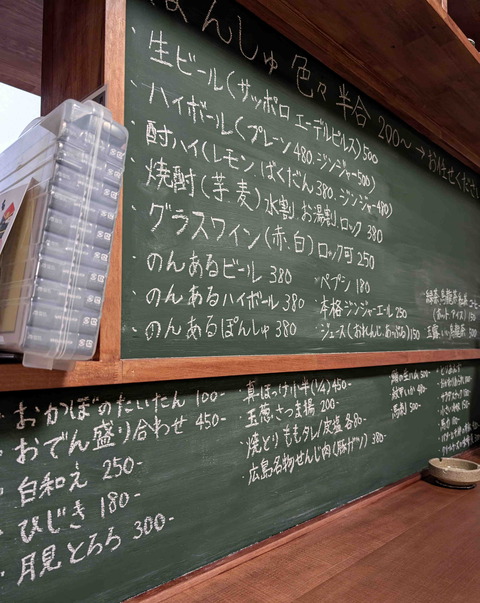 ぽんしゅ 色々 半合 200〜→お任せください
・生ビール(サッポロ エーデルピルス)500
・ハイボール(プレーン 480.ジンジャー500)
・酎ハイ(レモン.ばくだん380.ジンジャー480)
・焼酎(芋.麦)水割.お湯割.ロック 380
・グラスワイン(赤.白)ロック可 250
・のんあるビール 380
・ペプシ 180
・のんあるハイボール 380
・本格ジンジャーエール 250
・のんあるぽんしゅ 380
・ジュース(おれんじ.あっぷる)150
(ホット.アイス)150
・おかぼのたいたん 100-
・おでん盛り合わせ 450-
・白和え 250-
・ひじき 180-
・月見とろろ 300-
・真ほっけ小半(1/4)450-
・玉葱.さつま揚 200-
・焼とりももタレ/炭塩 各80-
・広島名物せんじ肉(豚ガツ)380-